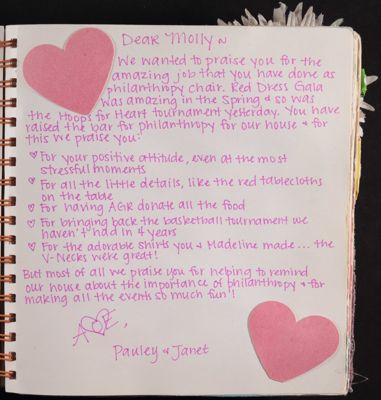 Dear Molly ~
We wanted to praise you for the
amazing job that you have done as
philanthropy chair. Red Dress Gala
was amazing in the Spring & so was
the Hoops for Heart tournament yesterday. You have
raised the bar for philanthropy for our house & for
this we praise you:
♡ For your positive attitude, even at the most
stressful moments
♡ For all the little details, like the red tablecloths
on the table
♡ For having AGR donate all the food
♡ For bringing back the basketball tournament we
haven't had in 4 years
♡ For the adorable shirts you & Madeline made... the
V-Necks were great!
But most of all we praise you for helping to remind
our house about the importance of philanthropy & for
making all the events so much fun!
Pauley & Janet